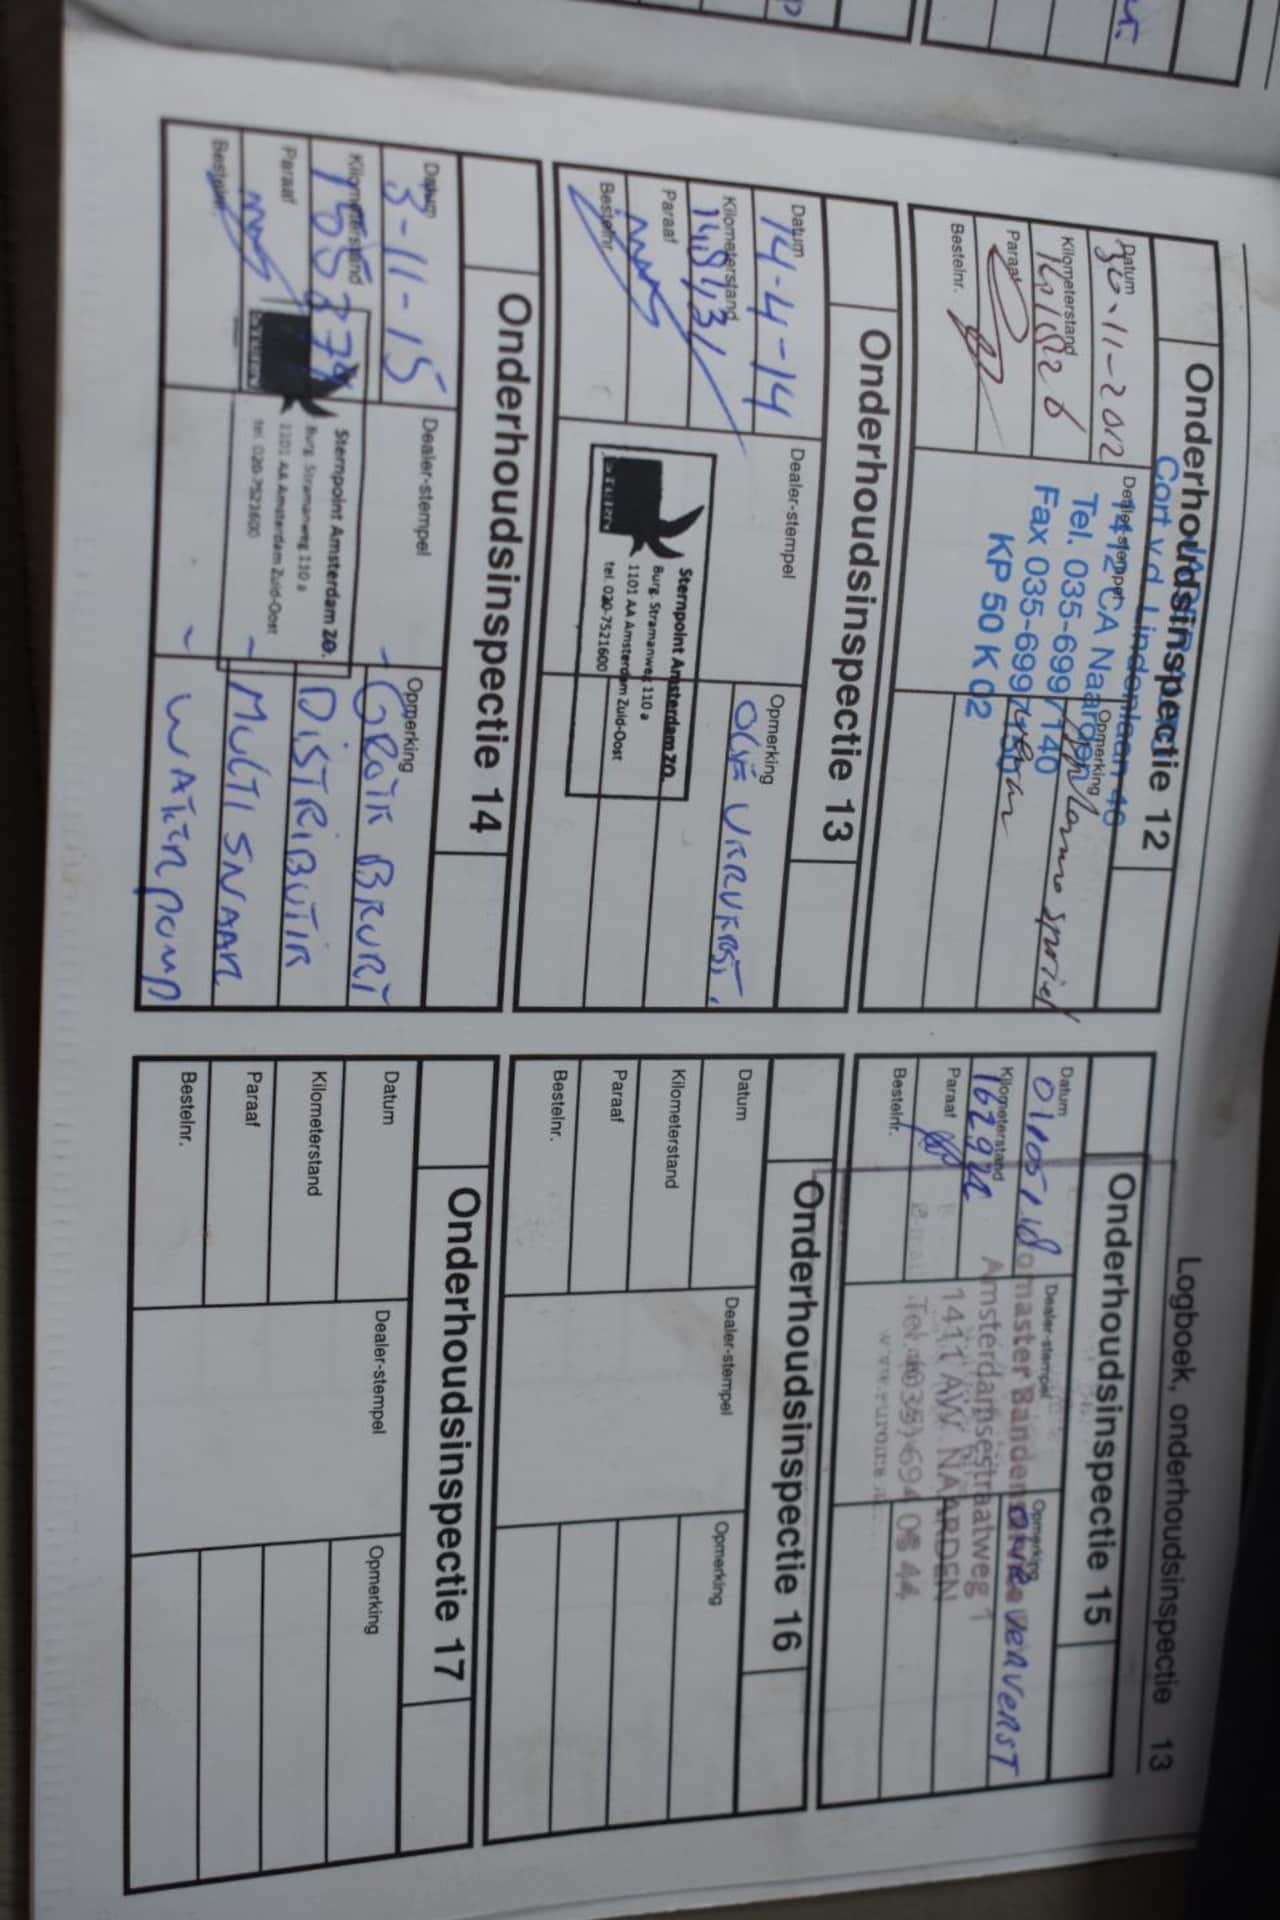 Logboek, onderhoudsinspectie 13
Onderhoudsinspectie 12
Datum
30-11-2012
Kilometerstand
Paraaf
Bestelnr.
Dealer-stempel
Cort v.d. Lindenlaan 46
1412 CA Naarden
Tel. 035-6997140
Fax 035-699
KP 50 K 02
Opmerking
Onderhoudsinspectie 13
Datum
14-4-14
Kilometerstand
148131
Paraaf
Bestelnr.
Dealer-stempel
STERN
Sternpoint Amsterdam ZO.
Burg. Stramanweg 110 a
1101 AA Amsterdam Zuid-Oost
tel. 020-7521600
Opmerking
OLIE VERVERST.
Onderhoudsinspectie 14
Datum
3-11-15
Kilometerstand
Paraaf
Bestelnr.
Dealer-stempel
STERN
Sternpoint Amsterdam ZO.
Burg. Stramanweg 110 a
1101 AA Amsterdam Zuid-Oost
tel. 020-7521600
Opmerking
- GROTE BEURT
DISTRIBUTIE
- MULTISNAAR
- WATERPOMP
Onderhoudsinspectie 15
Datum
01/05/18
Kilometerstand
Paraaf
Bestelnr.
Dealer-stempel
Amsterdamsestraatweg 1
1411 AW NAARDEN
Tel. (035) 694 08 44
Opmerking
OLIE VERVERST
Onderhoudsinspectie 16
Datum
Kilometerstand
Paraaf
Bestelnr.
Dealer-stempel
Opmerking
Onderhoudsinspectie 17
Datum
Kilometerstand
Paraaf
Bestelnr.
Dealer-stempel
Opmerking